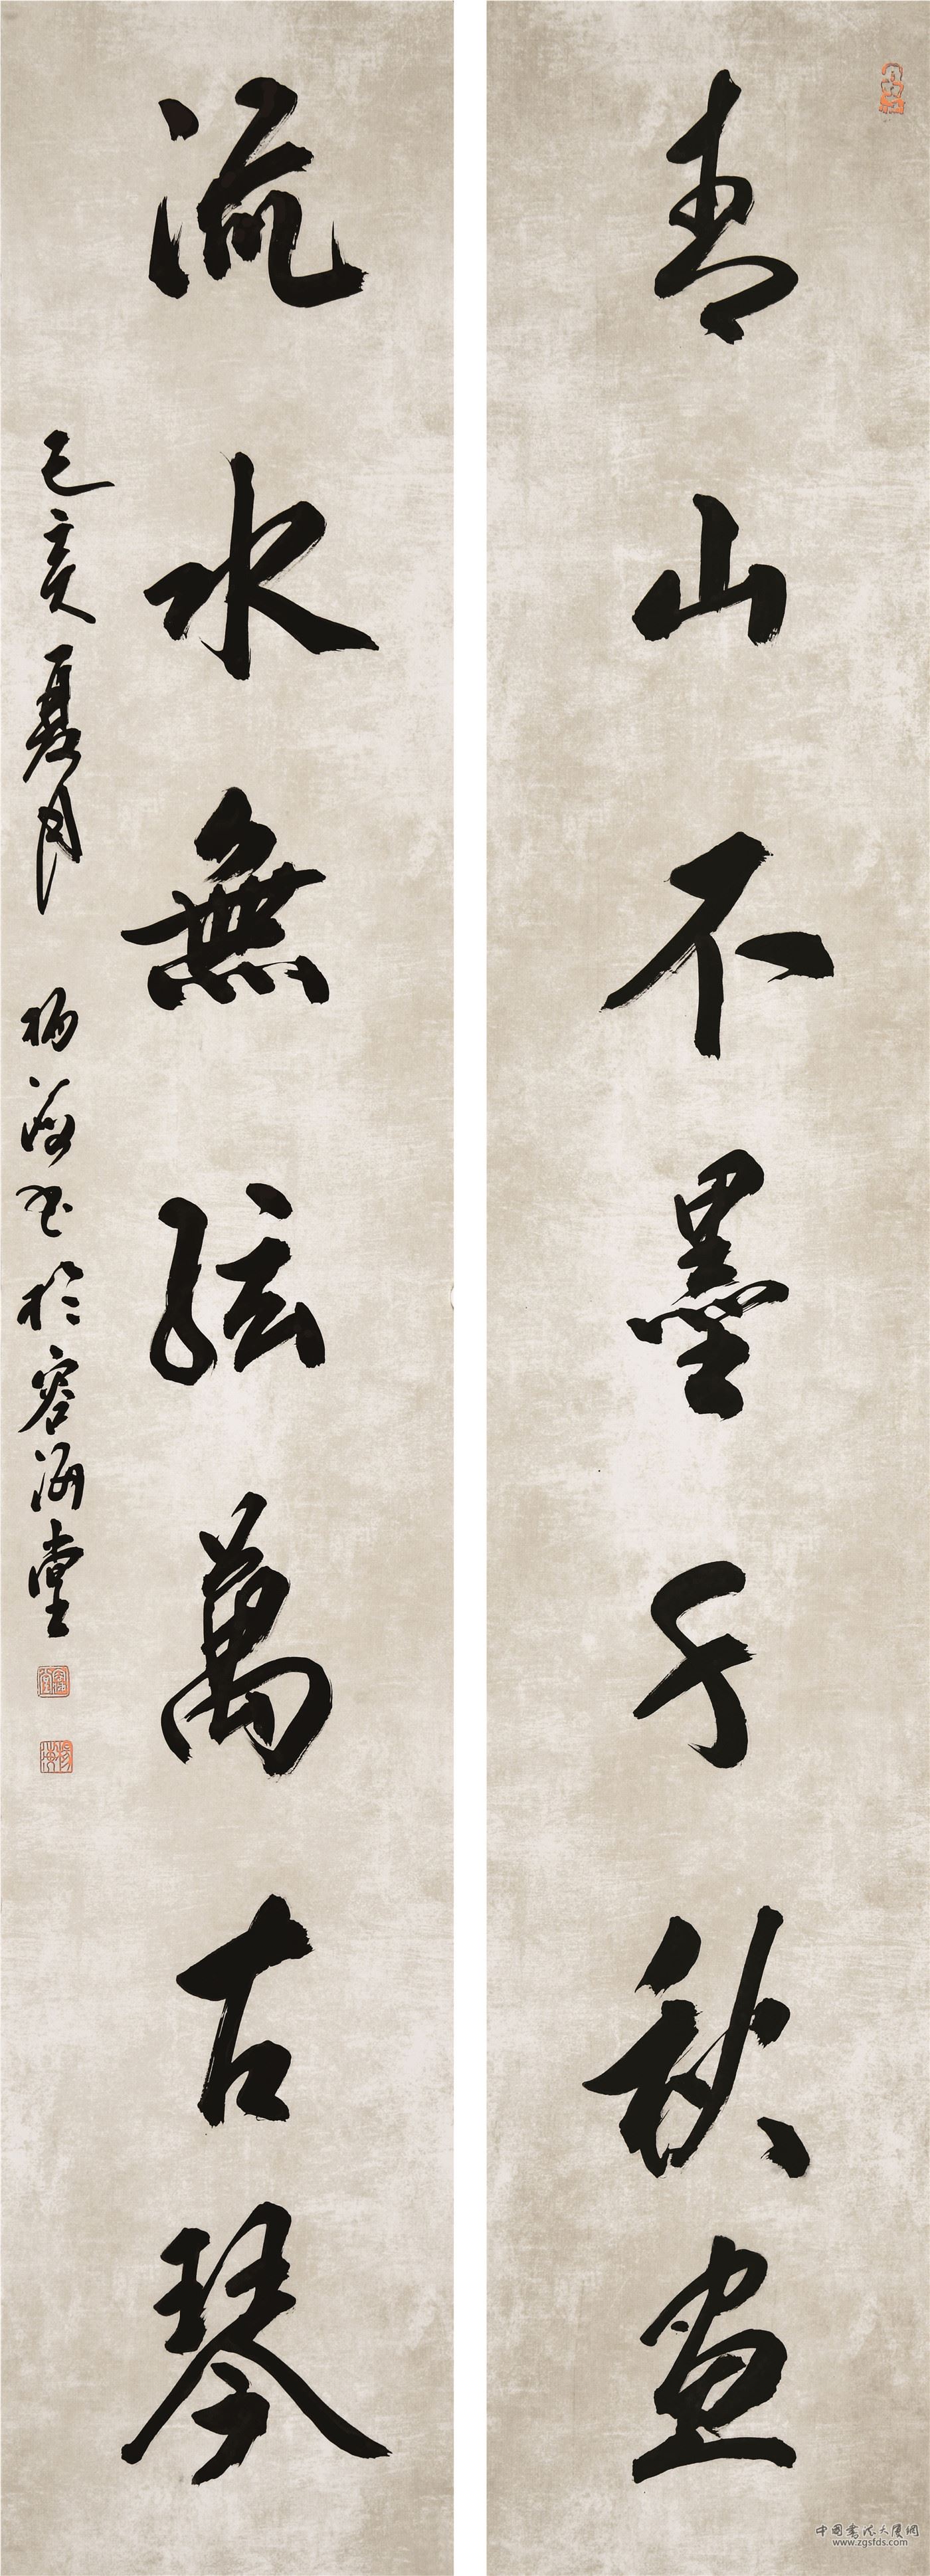 青山不墨千秋畫
流水無弦萬古琴
己亥夏月 楊海書於容海堂
中国书法大厦网
www.zgsfds.com